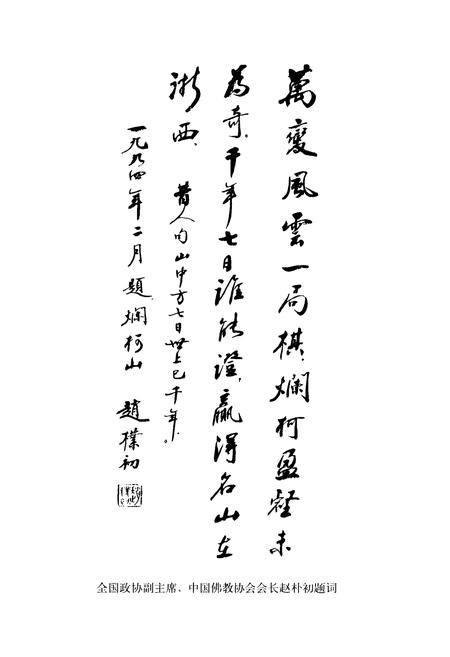 萬變風雲一局棋，爛柯盈壑未
為奇。千年七日誰能證，贏得名山在
浙西。 昔人句山中方七日世上已千年。
一九九四年二月題爛柯山 趙樸初
全国政协副主席、中国佛教协会会长赵朴初题词